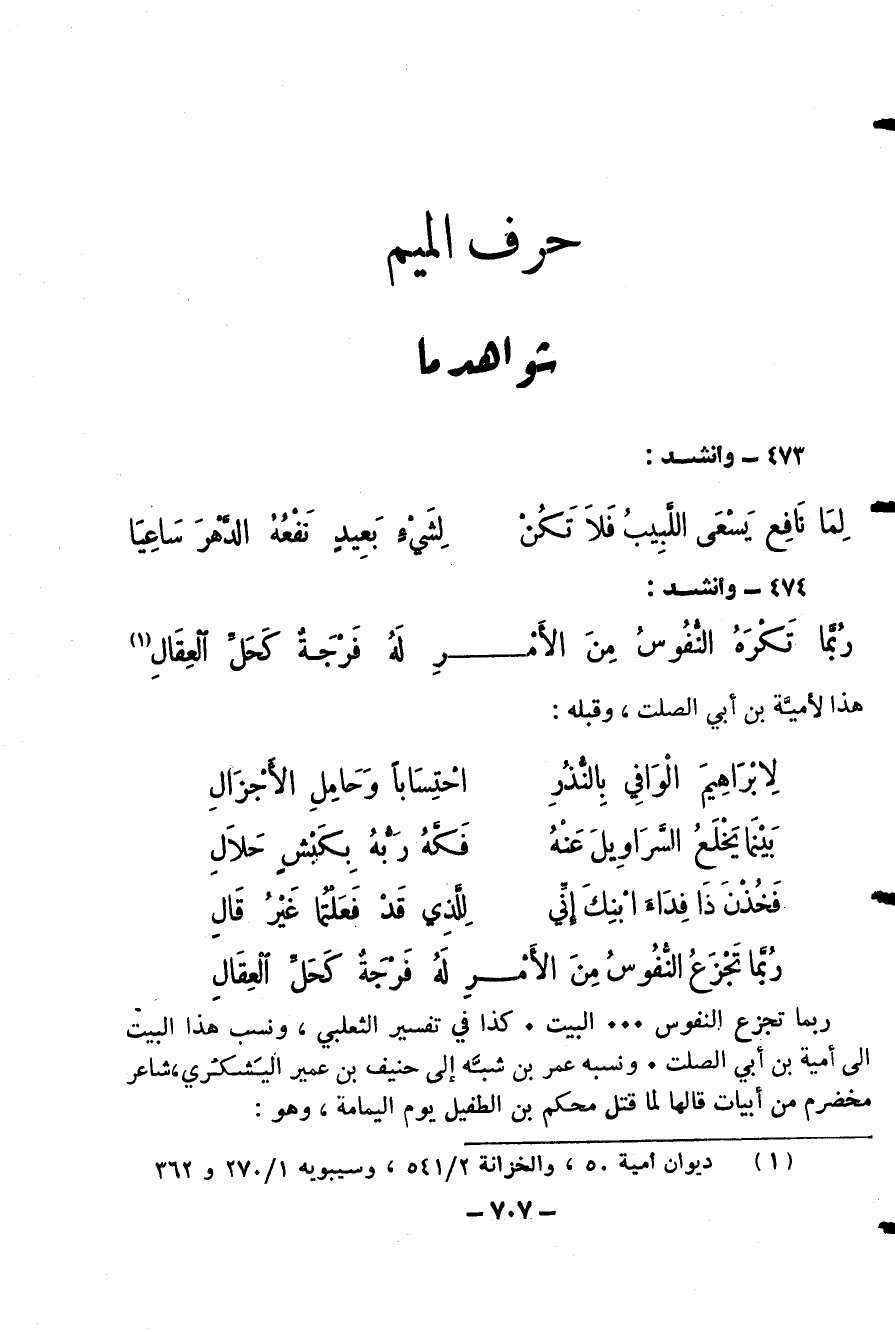 حرف الميم
شواهد ما
٤٧٣ – وأنشد :
لِمَا نَافِع يَسْعَى اللَّبِيبُ فَلاَ تَكُنْ لِشَيْءٍ بَعِيدٍ نَفْعُهُ الدَّهْرَ سَاعِيَا
٤٧٤ – وأنشد :
رُبَّمَا تَكْرَهُ النُّفُوسُ مِنَ الأَمْــرِ لَهُ فَرْجَةٌ كَحَلِّ ٱلْعِقَالِ(١)
هذا لأميَّة بن أبي الصلت ، وقبله :
لِابْرَاهِيمَ الْوَافِي بِالنُّذُرِ احْتِسَاباً وَحَامِلِ الأَجْزَالِ
بَيْنَمَا يَخْلَعُ السَّرَاوِيلَ عَنْهُ فَكَّهُ رَبُّهُ بِكَبْشٍ حَلاَلِ
فَخُذْنَ ذَا فِدَاءَ ابْنِكَ إِنِّي لِلَّذِي قَدْ فَعَلْتُمَا غَيْرُ قَالِ
رُبَّمَا تَجْزَعُ النُّفُوسُ مِنَ الأَمْــرِ لَهُ فَرْجَةٌ كَحَلِّ ٱلْعِقَالِ
ربما تجزع النفوس ... البيت . كذا في تفسير الثعلبي ، ونسب هذا البيت
الى أمية بن أبي الصلت . ونسبه عمر بن شبَّه إلى حنيف بن عمير اليَشكُري،شاعر
مخضرم من أبيات قالها لما قتل محكم بن الطفيل يوم اليمامة ، وهو :
(١) ديوان أمية ٥٠ ، والخزانة ٥٤١/٢ ، وسيبويه ٢٧٠/١ و ٣٦٢
– ٧٠٧ –